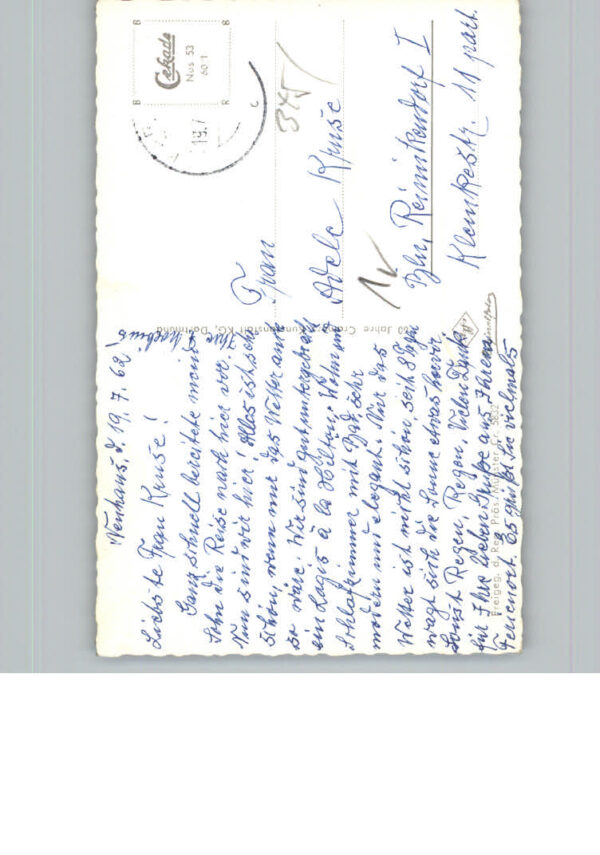 Neuhaus, d. 19.7.62
Liebste Frau Kruse!
Ganz schnell bereitete mein
Sohn die Reise nach hier vor.
Nun sind wir hier! Alles ist sehr
schön, wenn nur das Wetter auch
so wäre. Wir sind gut untergebracht
ein Logis à la Hilton. Wohn und
Schlafzimmer mit Bad, sehr
modern und elegant. Nur das
Wetter ist nicht schön, seit 8 Tagen
wagt sich die Sonne etwas hervor.
Sonst Regen, Regen. Vielen Dank
für Ihre lieben Grüße aus Ihrem
Ferienort. Es grüßt Sie vielmals
Ihre
Freigeg. d. Reg. Präs. Münster
Jahre Cramers Kunstanstalt KG, Dortmund
Cekade
Nus 53
60 1
B
B
R
C
19.7
345
Frau
Adele Kruse
1V
Bln, Reinikendorf I
Klemkestr. 11 part.